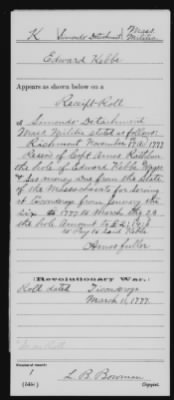 K | Simonds Detachment | Mass. Militia
Edward Kebbe
Appears as shown below on a
Receipt Roll
of Simonds Detachment
Mass Militia stated as follows:
Richmont November 17th 1777
Recev'd of Capt Amos Rathbun
the hole of Edward Kebbe Wages
& his money Due from the State
of the Massachusets for Serving
at Ticondroga from Jenuary the
Six to 1777 to March the 23
the hole Amount to £
to Pay to said Kebbe
Amos fuller
Revolutionary War.
Roll dated Ticondroga
March 1, 1777.
Number of record:
1
(Table.)
L. B. Bowman
Copyist.